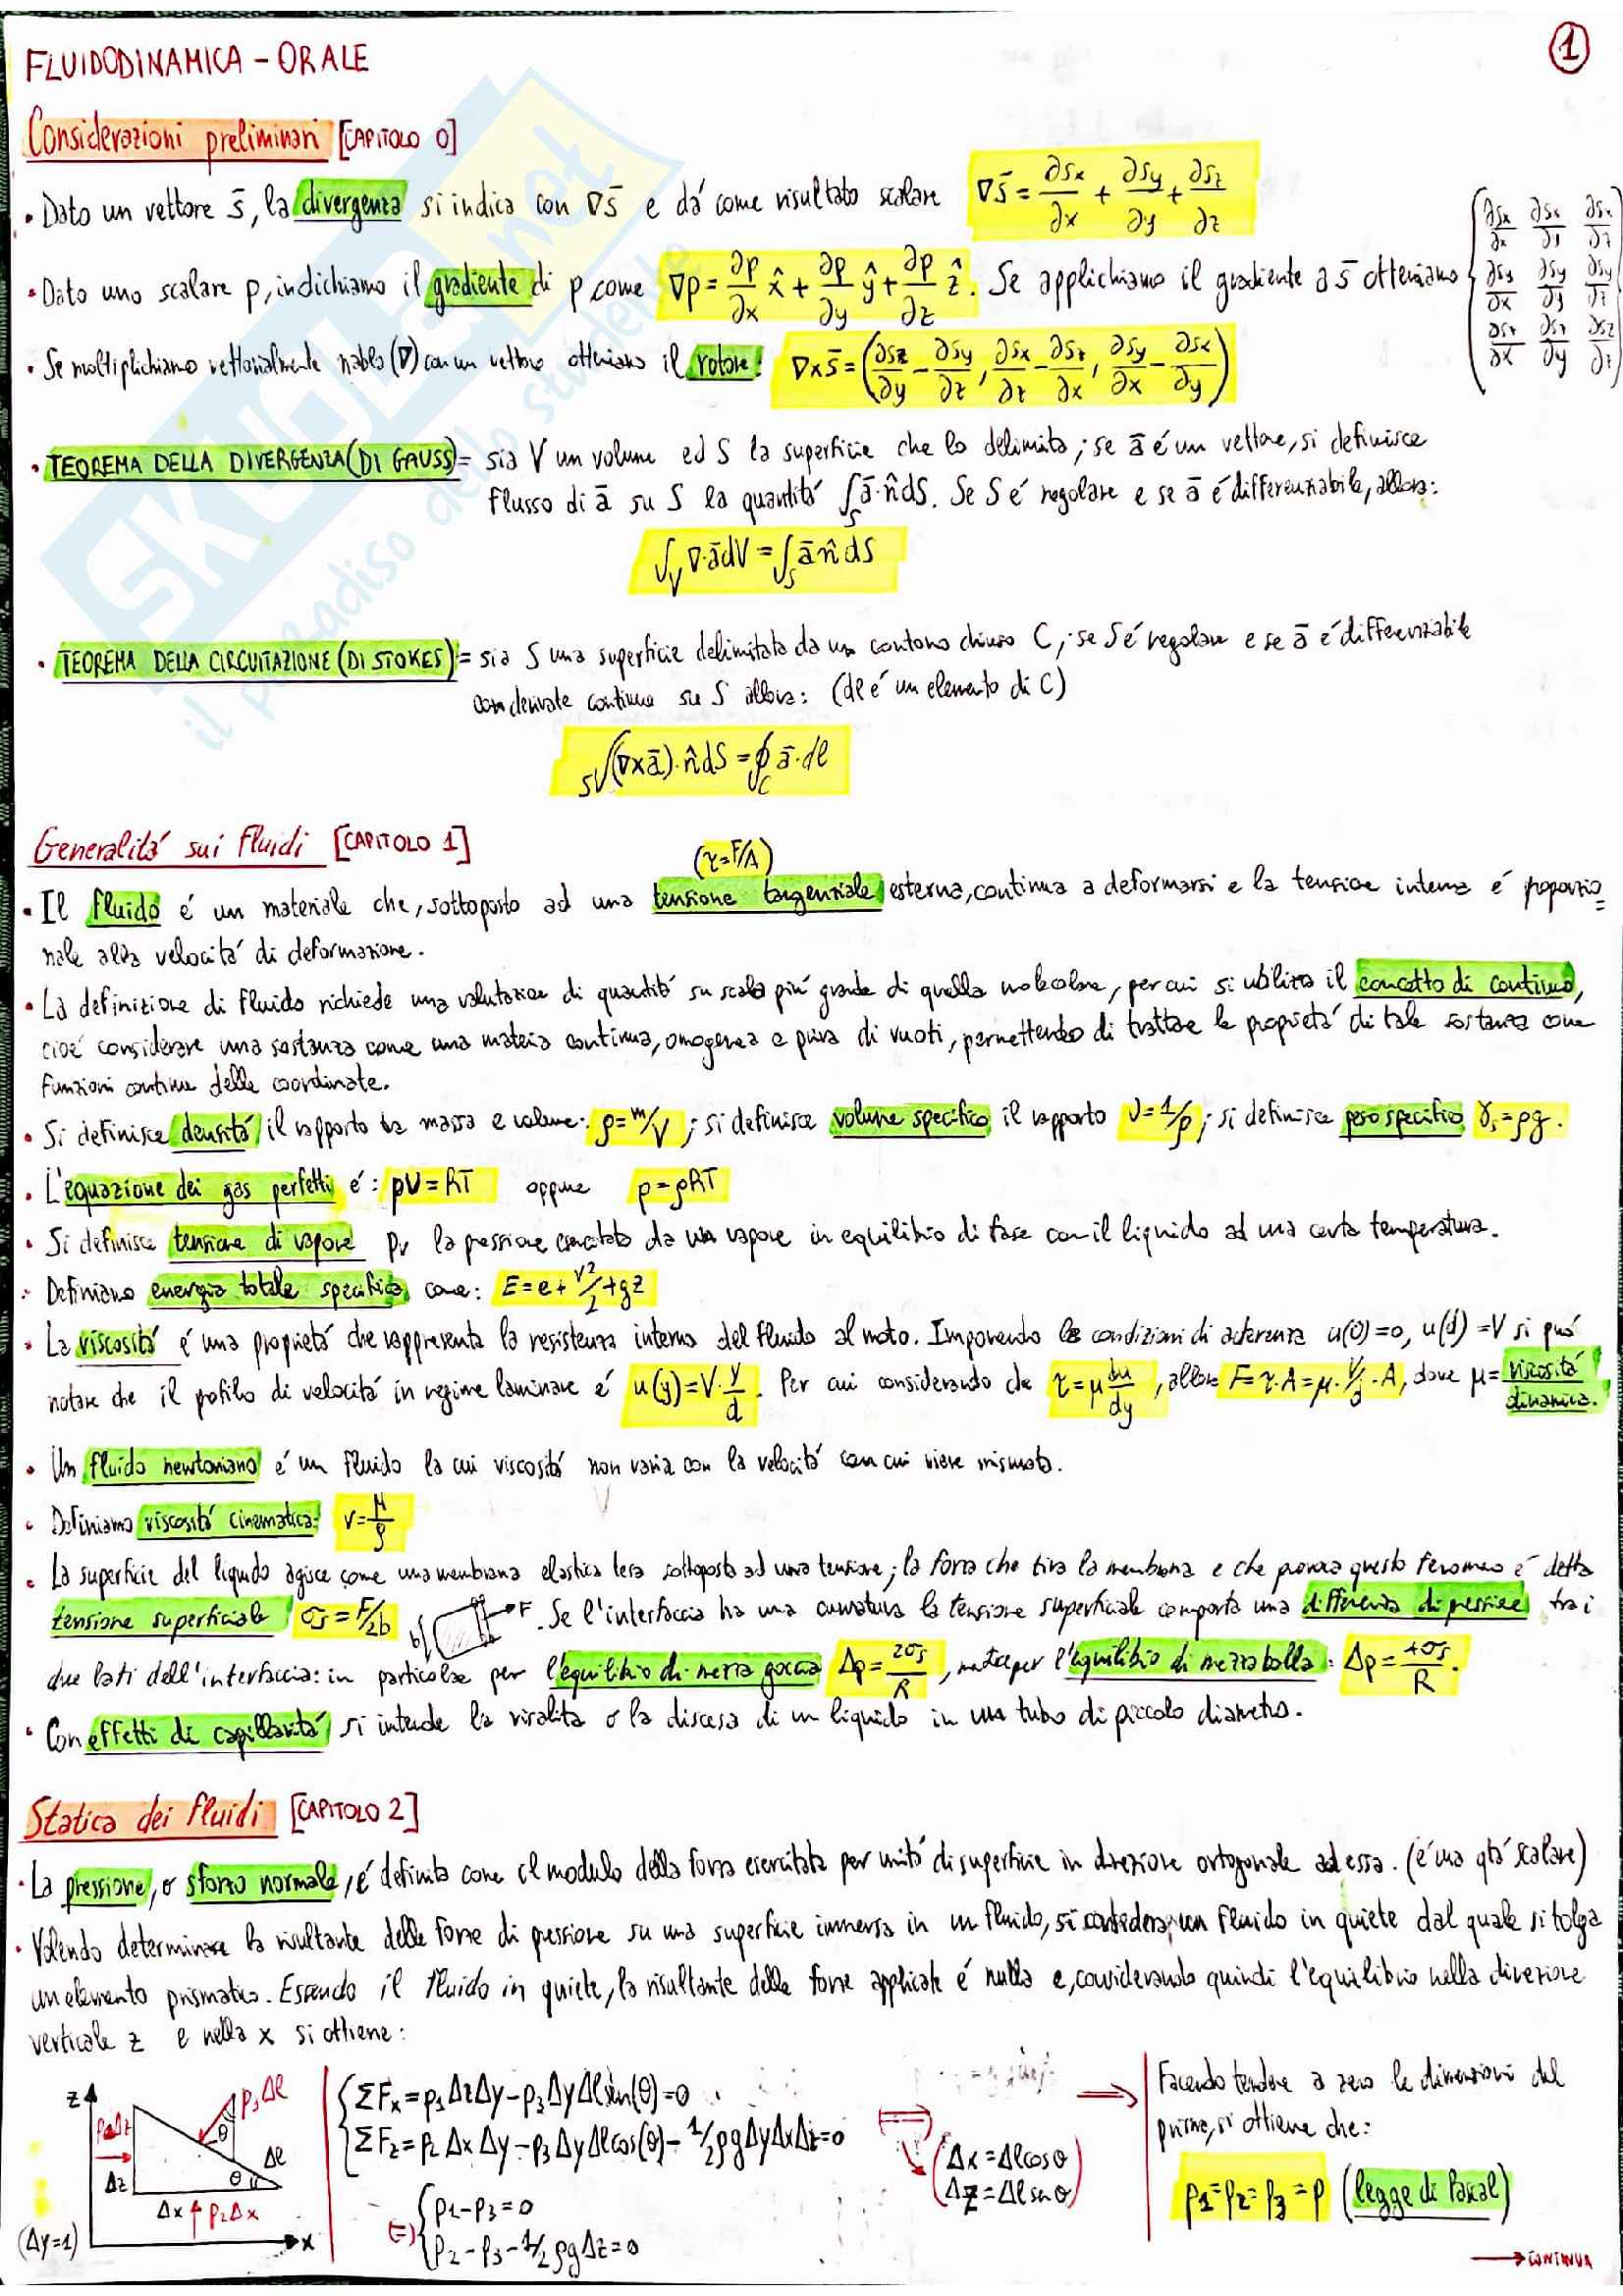 FLUIDODINAMICA - ORALE
1
Considerazioni preliminari [CAPITOLO 0]
• Dato un vettore s̄, la divergenza si indica con ∇s̄ e dá come risultato scalare ∇s̄ = ∂sx/∂x + ∂sy/∂y + ∂sz/∂z
• Dato uno scalare p, indichiamo il gradiente di p come ∇p = ∂p/∂x x̂ + ∂p/∂y ŷ + ∂p/∂z ẑ. Se applichiamo il gradiente a s̄ otteniamo
∂sx/∂x ∂sx/∂y ∂sx/∂z
∂sy/∂x ∂sy/∂y ∂sy/∂z
∂sz/∂x ∂sz/∂y ∂sz/∂z
• Se moltiplichiamo vettorialmente nabla (∇) con un vettore otteniamo il rotore: ∇×s̄ = (∂sz/∂y - ∂sy/∂z, ∂sx/∂z - ∂sz/∂x, ∂sy/∂x - ∂sx/∂y)
• TEOREMA DELLA DIVERGENZA (DI GAUSS) = sia V un volume ed S la superficie che lo delimita; se ā é un vettore, si definisce
flusso di ā su S la quantitá ∫S ā·n̂ dS. Se S é regolare e se ā é differenziabile, allora:
∫V ∇·ā dV = ∫S ā n̂ dS
• TEOREMA DELLA CIRCUITAZIONE (DI STOKES) = sia S una superficie delimitata da un contorno chiuso C, se S é regolare e se ā é differenziabile
con derivate continue su S allora: (dl é un elemento di C)
S∫(∇×ā)·n̂ dS = ∮C ā·dl
Generalitá sui fluidi [CAPITOLO 1]
(τ=F/A)
• Il fluido é un materiale che, sottoposto ad una tensione tangenziale esterna, continua a deformarsi e la tensione interna é proporzio=
nale alla velocitá di deformazione.
• La definizione di fluido richiede una valutazione di quantitá su scala piú grande di quella molecolare, per cui si utilizza il concetto di continuo,
cioé considerare una sostanza come una materia continua, omogenea e priva di vuoti, permettendo di trattare le proprietá di tale sostanza come
funzioni continue delle coordinate.
• Si definisce densitá il rapporto tra massa e volume: ρ=m/V; si definisce volume specifico il rapporto v=1/ρ; si definisce peso specifico γs=ρg.
• L'equazione dei gas perfetti é: pv=RT oppure p=ρRT
• Si definisce tensione di vapore pv la pressione esercitata da un vapore in equilibrio di fase con il liquido ad una certa temperatura.
• Definiamo energia totale specifica come: E=e+v²/2+gz
• La viscositá é una proprietá che rappresenta la resistenza interna del fluido al moto. Imponendo le condizioni di aderenza u(0)=0, u(d)=V si puó
notare che il profilo di velocitá in regime laminare é u(y)=V·y/d. Per cui considerando che τ=μ du/dy, allora F=τ·A=μ·V/d·A, dove μ=viscositá
dinamica.
• Un fluido newtoniano é un fluido la cui viscositá non varia con la velocitá con cui viene misurata.
• Definiamo viscositá cinematica: ν=μ/ρ
• La superficie del liquido agisce come una membrana elastica tesa sottoposta ad una tensione; la forza che tira la membrana e che provoca questo fenomeno é detta
tensione superficiale σs=F/2b b F. Se l'interfaccia ha una curvatura la tensione superficiale comporta una differenza di pressione tra i
due lati dell'interfaccia: in particolare per l'equilibrio di mezza goccia Δp=2σs/R, mentre per l'equilibrio di mezza bolla: Δp=4σs/R.
• Con effetti di capillaritá si intende la risalita o la discesa di un liquido in un tubo di piccolo diametro.
Statica dei fluidi [CAPITOLO 2]
• La pressione, o sforzo normale, é definita come il modulo della forza esercitata per unitá di superficie in direzione ortogonale ad essa. (é una qtá scalare)
• Volendo determinare la risultante delle forze di pressione su una superficie immersa in un fluido, si considera un fluido in quiete dal quale si tolga
un elemento prismatico. Essendo il fluido in quiete, la risultante delle forze applicate é nulla e, considerando quindi l'equilibrio nella direzione
verticale z e nella x si ottiene:
z p1Δz Δz p3Δl θ Δl θ Δx p2Δx x
(Δy=1)
ΣFx = p1ΔzΔy - p3ΔyΔl sin(θ) = 0
ΣFz = p2ΔxΔy - p3ΔyΔl cos(θ) - 1/2ρgΔyΔxΔz = 0
(=) p1-p3=0
p2-p3-1/2ρgΔz=0
(Δx=Δl cosθ
Δz=Δl sinθ)
Facendo tendere a zero le dimensioni del
prisma, si ottiene che:
p1=p2=p3=p (legge di Pascal)
→ CONTINUA
SKUOLA.net
il paradiso dello studente